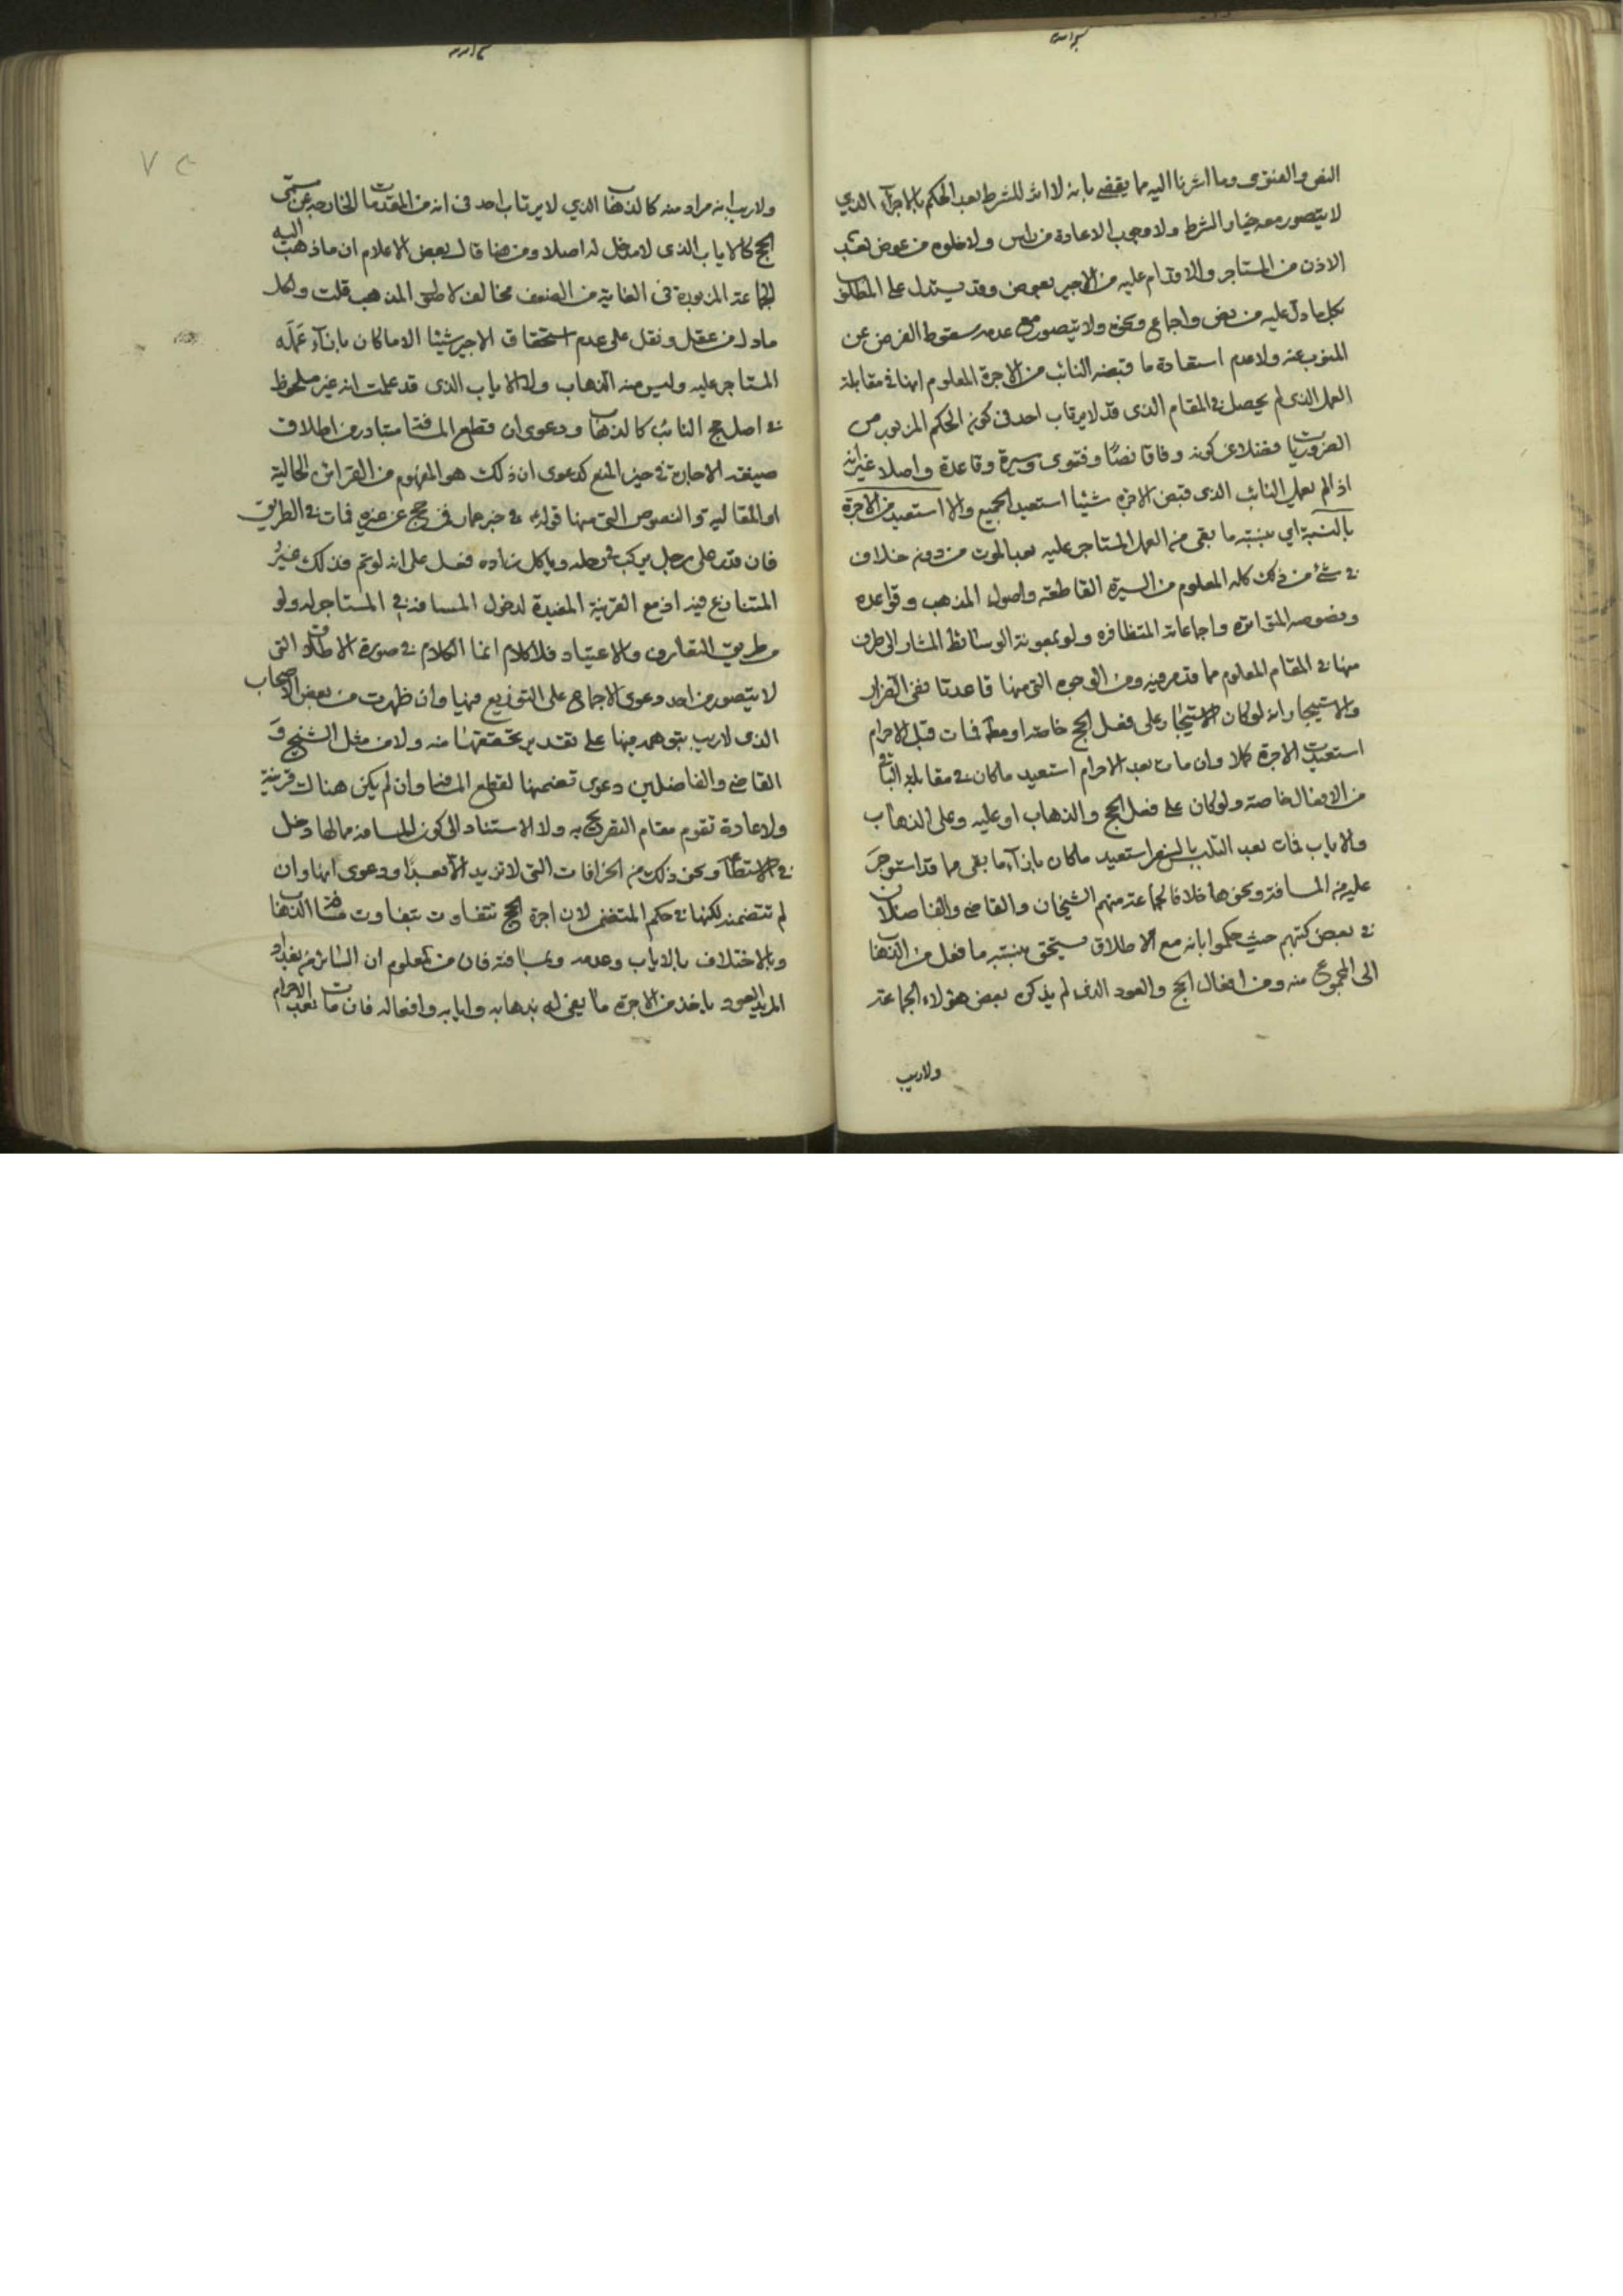 النص والفتوى وما اشرنا اليه مما يقضي بانه لا اثر للشرط بعد الحكم بالاجزآء الذي
لا يتصور معه خيار الشرط ولا وجوب الاعادة من راس ولا خلوه من عوض بعد
الاذن من المستاجر والاقدام عليه من الاجير بعوض وقد يستدل على المطلق
بكل ما دل عليه من نص واجماع ونحوه ولا يتصور مع عدمه سقوط الفرض عن
المنوب عنه ولا عدم استعادة ما قبضه النائب من الاجرة المعلوم انها في مقابلة
العمل الذي لم يحصل في المقام الذي قد لا يرتاب احد في كونه الحكم المزبور من
الضروريات فضلا عن كونه وفاقا نصًا وفتوى وسيرة وقاعدة واصلا غير انه
اذا لم يعمل النائب الذي قبض الاجرة شيئا استعيد الجميع والا استعيد من الاجرة
بالنسبة اي بنسبة ما بقى من العمل المستاجر عليه بعد الموت من دون خلاف
في شئ من ذلك كله المعلوم من السيرة القاطعة واصول المذهب وقواعده
ونصوصه المتواترة واجماعاته المتظافره ولو بمعونة الوسائط المشار الى طرف
منها في المقام المعلوم مما قدمر فيه ومن الوجوه التي منها قاعدتا نفى الضرار
والاستيجار انه لو كان الاستيجار على فعل الحج خاصة او مطلقا فمات قبل الاحرام
استعيدت الاجرة كلا وان مات بعد الاحرام استعيد ما كان في مقابلة الباقي
من الافعال خاصة ولو كان على فعل الحج والذهاب او عليه وعلى الذهاب
والاياب فمات بعد التلبس بالسفر استعيد ما كان بازآء ما بقى مما قد استوجر
عليه من المسافة ونحوها خلافا لجماعة منهم الشيخان والقاضي والفاضلان
في بعض كتبهم حيث حكموا بانه مع الاطلاق يستحق بنسبة ما فعل من الذهاب
الى المجموع منه ومن افعال الحج والعود الذى لم يذكره بعض هؤلاء الجماعة
ولاريب
ولاريب انه مراد منه كالذهاب الذي لا يرتاب احد في انه من المقدمات الخارجه عن مسمى
الحج كالاياب الذى لا مدخل له اصلا ومن هنا قال بعض الاعلام ان ما ذهب اليه
الجماعة المزبورة في الغاية من الضعف مخالف لاطلاق المذهب قلت ولكل
ما دل من عقل ونقل على عدم استحقاق الاجير شيئا الا ما كان بازآء عمله
المستاجر عليه وليس منه الذهاب ولا الاياب الذى قد علمت انه غير ملحوظ
في اصل حج النائب كالذهاب ودعوى ان قطع المسافة متبادر من اطلاق
صيغة الاجارة في حيز المنع كدعوى ان ذلك هو المفهوم من القرائن الحالية
او المقالية والنصوص التى منها قوله في خبر عمار في حج عن غيره فمات في الطريق
فان قدر على رجل يركب في رحله وياكل زاده فعل على انه لو تم فذلك غير
المتنازع فيه اذ مع القرينة المفيدة لدخول المسافة في المستاجر له ولو
بطريق التعارف والاعتياد فلا كلام انما الكلام في صورة الاطلاق التى
لا يتصور من احد دعوى الاجماع على التوزيع فيها وان ظهرت من بعض الاصحاب
الذى لاريب بتوهمه فيها على تقدير تحققها منه ولا من مثل الشيخ و
القاضي والفاضلين دعوى تضمنها لقطع المسافة وان لم يكن هناك قرينة
ولا عادة تقوم مقام التصريح به ولا الاستناد الى كون المسافة مما لها دخل
في الاستطاعة ونحو ذلك من الخرافات التى لا تزيد الا بعدا ودعوى انها وان
لم تتضمنه لكنها في حكم المتضمن لان اجرة الحج تتفاوت بتفاوت مسافة الذهاب
وبالاختلاف بالاياب وعدمه وبمسافته فان من المعلوم ان السائر من بغداد
المريد العود ياخذ من الاجرة ما يفي له بذهابه وايابه وافعاله فان مات بعد الاحرام